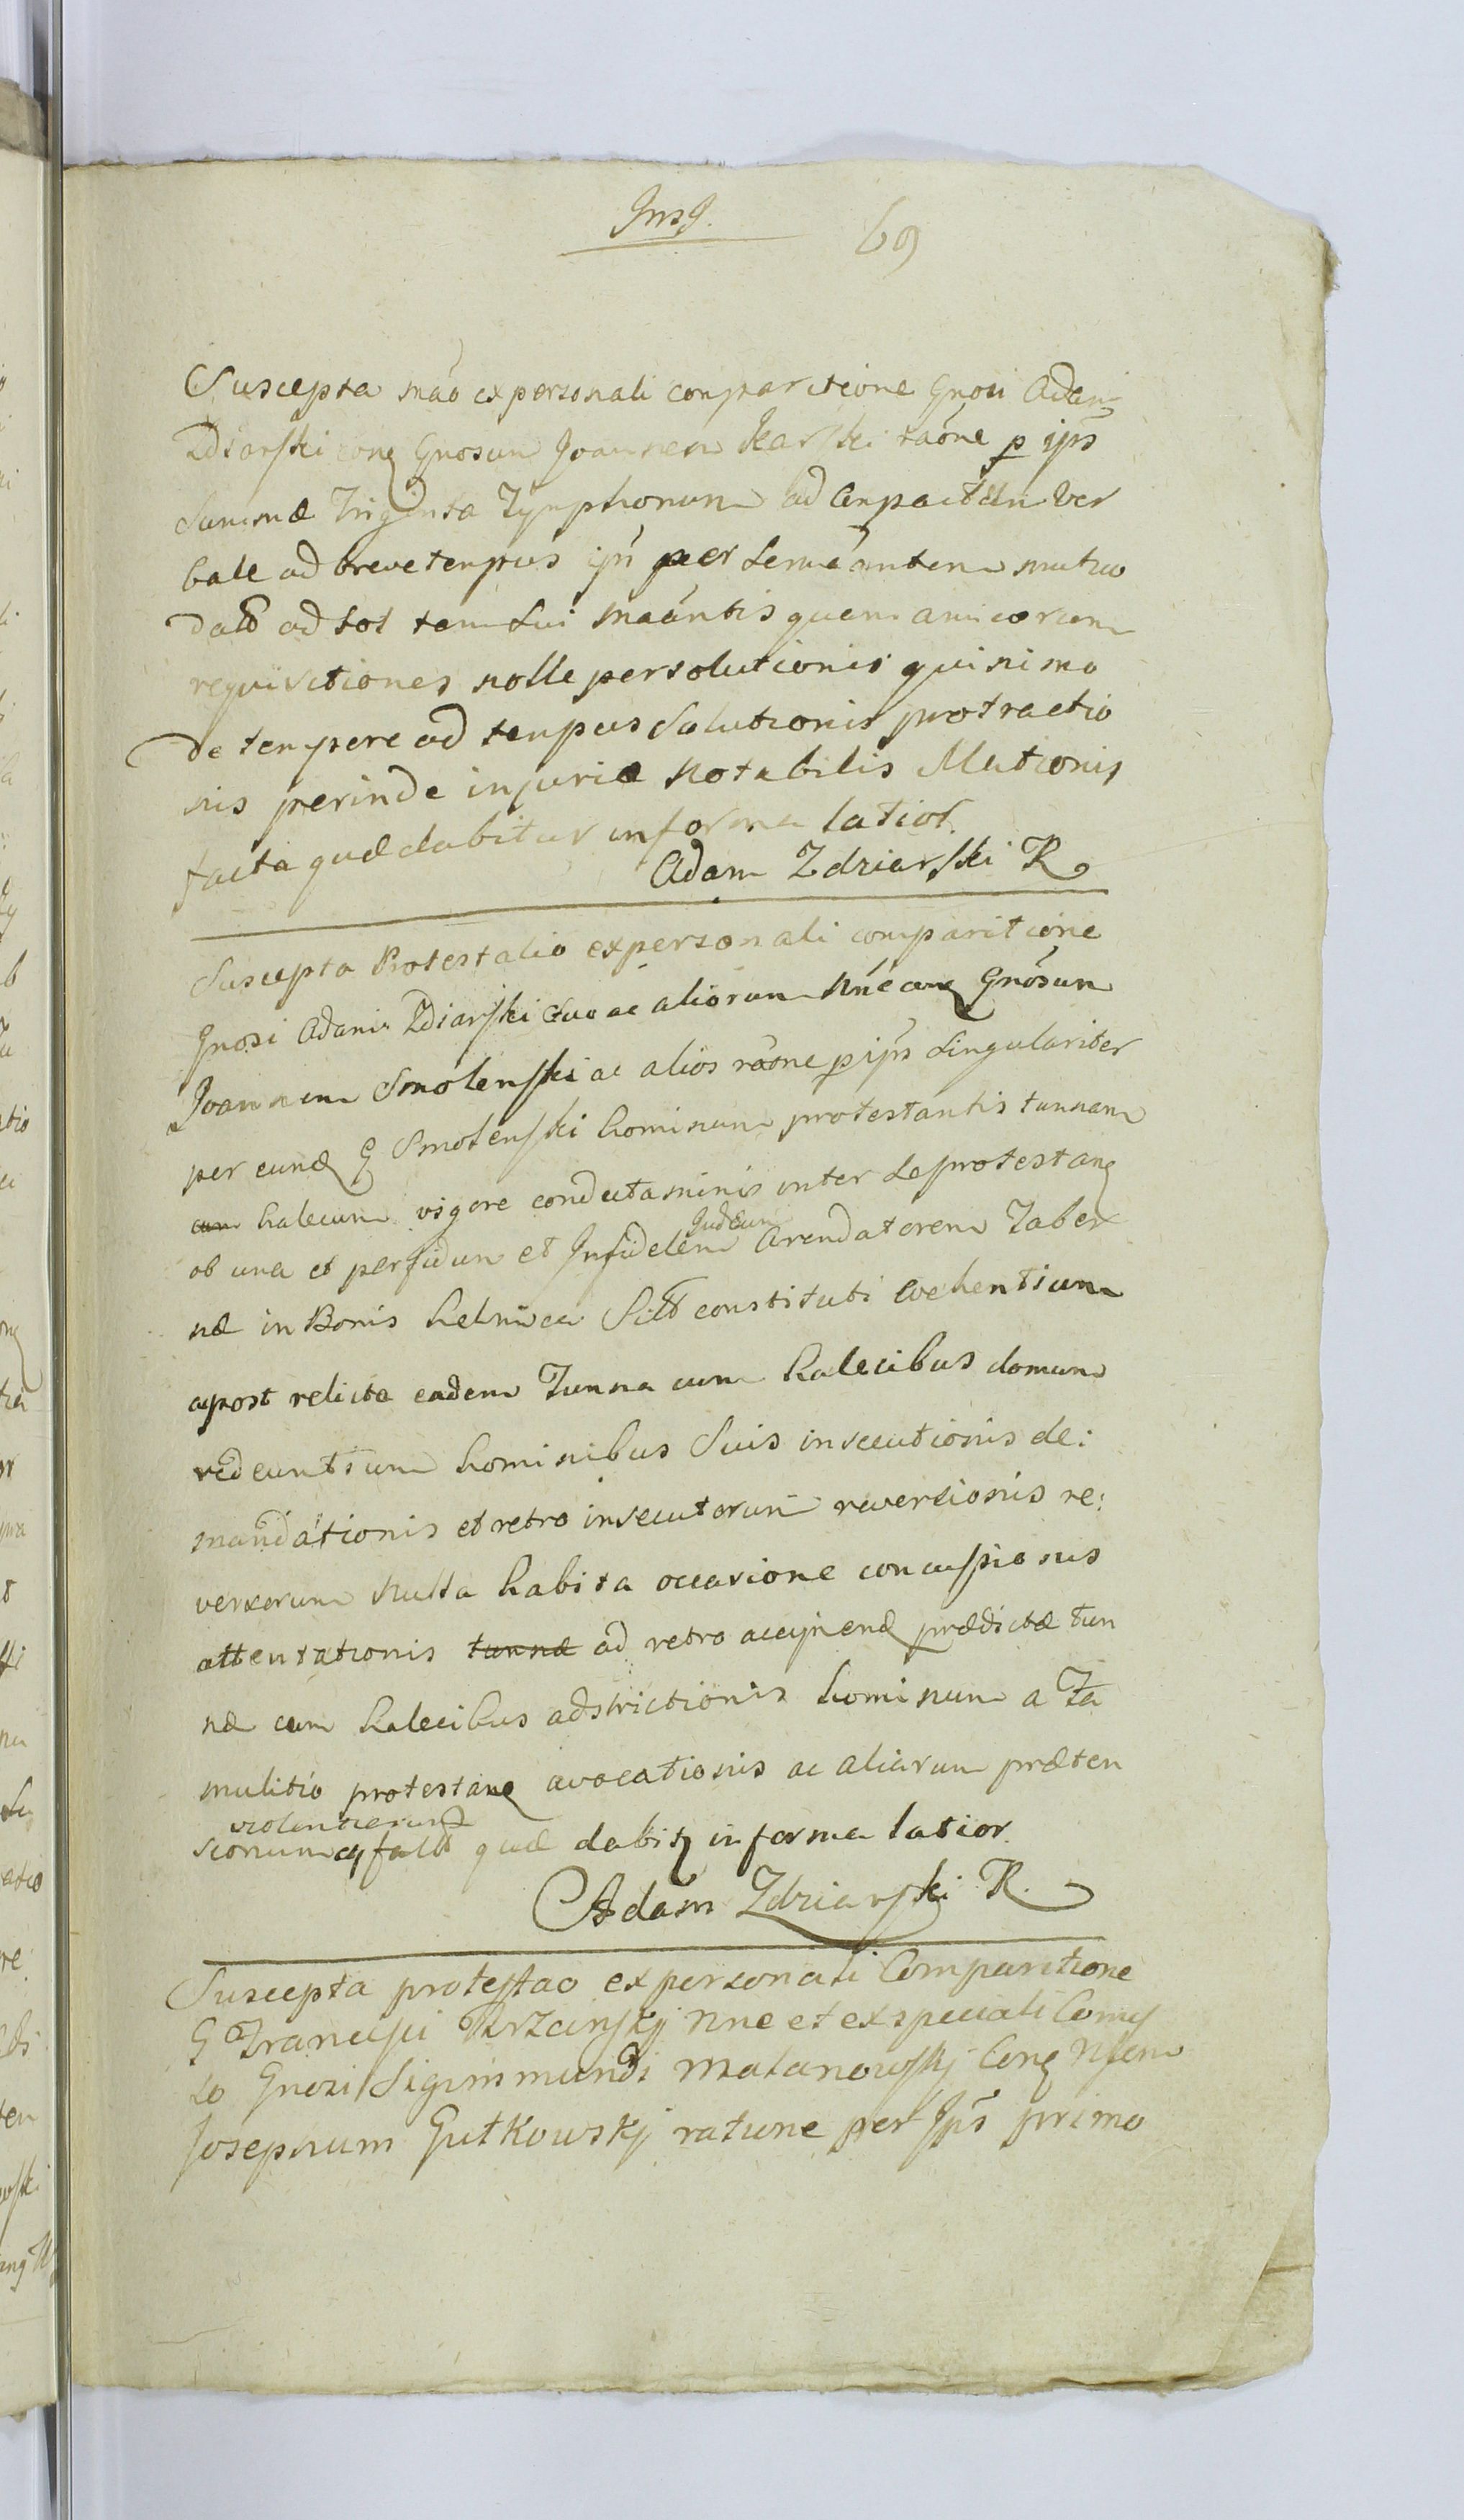 69
Suscepta mão ex personali comparitione Gnosi Adami
Zdiarski conq Gnosum Joannem Karski raõne p ips
Summæ Triginta Tynphonum ad Compactum Ver
bale ad breve tempus ipi per se mãnntem mutuo
dato ad tot tam sui maãntis quam amicorum
requisitiones nolle persolutionis quinimo
de tempore ad tempus Solutionis protractio
nis perinde injuriæ Notabilis Mutionis
facta quæ dabitur in forma latior.
Adam Zdziarski R
Suscepta Protestatio ex personali comparitione
Gnosi Adami Zdiarski suo ac aliorum Nñe conq Gnõsum
Joannem Smolenski ac alios raõne p ips singulariter
per eunq G Smolenski hominum protestantis tunnam
cum halecum vigore condictaminis inter se protestanq
ob una et perfidum et Infidelem Judæum Arendatorem Taber
næ in Bonis Sitt constituti evehentium
apost relicta eadem Tunna cum halecibus domum
redeuntium hominibus Suis insecutionis de:
mandationis et retro insecutorum reversionis re:
versorum Nulla habita occasione concussionis
attentationis tunnæ ad retro accipienq prædictæ tun
næ cum halecibus adstrictionis hominum a Fa
mulitio protestanq avocationis ac aliarum præten
violentiarum
sionum q falt quæ dabitq in forma latior.
Adam Zdziarski R.
Suscepta protestao ex personali Comparitione
G Francisci Krzcinskj Nne et ex speciali Comis
so Gnosi Sigismundi Malanowskj Conq Nsem
Josephum Gutkowskj ratione per Ips primo